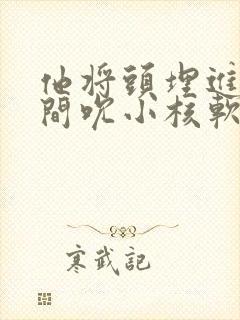 他将頭埋進
間吮小核軟
寒武記